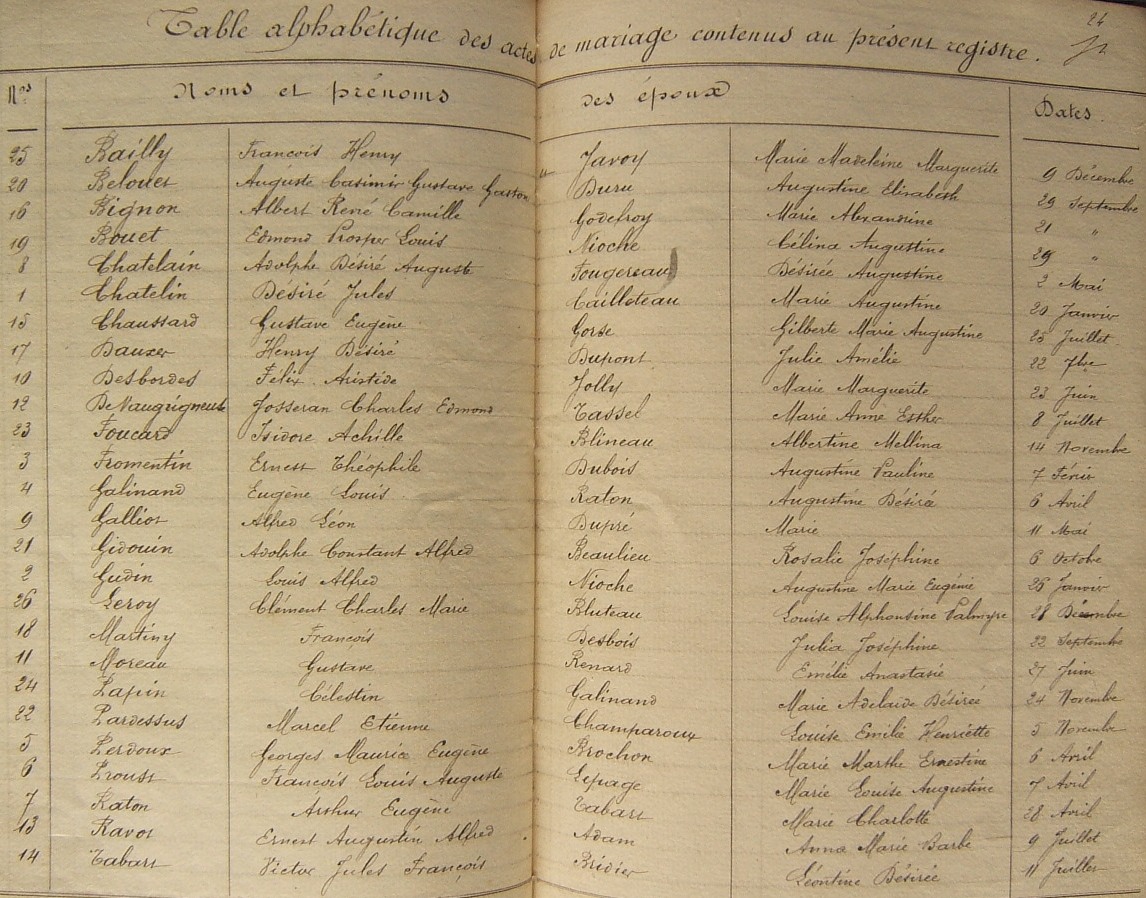 24
Table alphabétique des actes de mariage contenus au présent registre.
Nos Noms et prénoms des époux Dates
25 Bailly François Henry Javoy Marie Madeleine Marguerite 9 Décembre
20 Belouet Auguste Casimir Gustave Gaston Duru Augustine Elisabeth 29 Septembre
16 Bignon Albert René Camille Godefroy Marie Alexandrine 21 "
19 Bouet Edmond Prosper Louis Nioche Célina Augustine 29 "
8 Chatelain Adolphe Désiré Auguste Fougereau Désirée Augustine 2 Mai
1 Chatelin Désiré Jules Cailloteau Marie Augustine 20 Janvier
15 Chaussard Gustave Eugène Gorse Gilberte Marie Augustine 25 Juillet
17 Dauxer Henry Désiré Dupont Julie Amélie 22 7bre
10 Desbordes Felix Aristide Jolly Marie Marguerite 23 Juin
12 De Vaugrigneuse Josseran Charles Edmond Tassel Marie Anne Esther 8 Juillet
23 Foucard Isidore Achille Blineau Albertine Mellina 14 Novembre
3 Fromentin Ernest Théophile Dubois Augustine Pauline 7 Février
4 Galinand Eugène Louis Raton Augustine Désirée 6 Avril
9 Galliot Alfred Léon Dupré Marie 11 Mai
21 Gidouin Adolphe Constant Alfred Beaulieu Rosalie Joséphine 6 Octobre
2 Gudin Louis Alfred Nioche Augustine Marie Eugénie 26 Janvier
26 Leroy Clément Charles Marie Bluteau Louise Alphonsine Palmyre 28 Décembre
18 Martiny François Desbois Julia Joséphine 22 Septembre
11 Moreau Gustave Renard Emélie Anastasie 27 Juin
24 Papin Célestin Galinand Marie Adelaide Désirée 24 Novembre
22 Pardessus Marcel Etienne Champaroux Louise Emilie Henriette 5 Novembre
5 Perdoux Georges Maurice Eugène Brochon Marie Marthe Ernestine 6 Avril
6 Proust François Louis Auguste Lepage Marie Louise Augustine 7 Avril
7 Raton Arthur Eugène Tabart Marie Charlotte 28 Avril
13 Ravot Ernest Augustin Alfred Adam Anna Marie Barbe 9 Juillet
14 Tabart Victor Jules François Bridier Léontine Désirée 11 Juillet